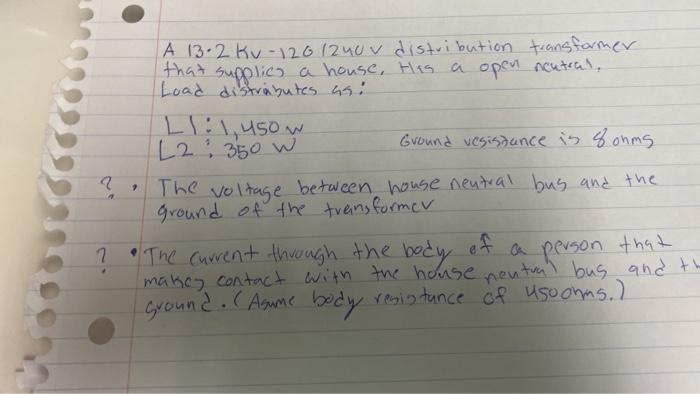 A 13.2 Kv - 120/240 v distribution transformer
that supplies a house, Has a open neutral.
Load distributes as:
L1: 1,450 w
L2: 350 W
Ground resistance is 8 ohms
? • The voltage between house neutral bus and the
ground of the transformer
? • The current through the body of a person that
makes contact with the house neutral bus and th
ground. (Asume body resistance of 450 ohms.)